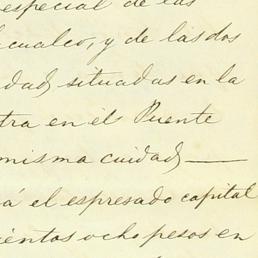 especial de las
cualco, y de las dos
dad, situadas en la
tra en el Puente
misma cuidad,
á el espresado capital
cientos ocho pesos en